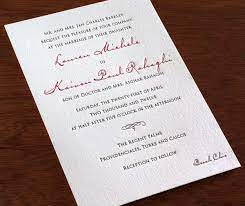 MR. AND MRS. JAN CHARLES BARKLEY
REQUEST THE PLEASURE OF YOUR COMPANY
AT THE MARRIAGE OF THEIR DAUGHTER
Lauren Michele
TO
Paul
SON OF DOCTOR AND MRS.
SATURDAY, THE TWENTY-FIRST OF APRIL
TWO THOUSAND AND TWELVE
AT HALF AFTER FIVE O'CLOCK IN THE AFTERNOON
THE REGENT PALMS
PROVIDENCIALES, TURKS AND CAICOS
RECEPTION TO FOLLOW
Beach Chic